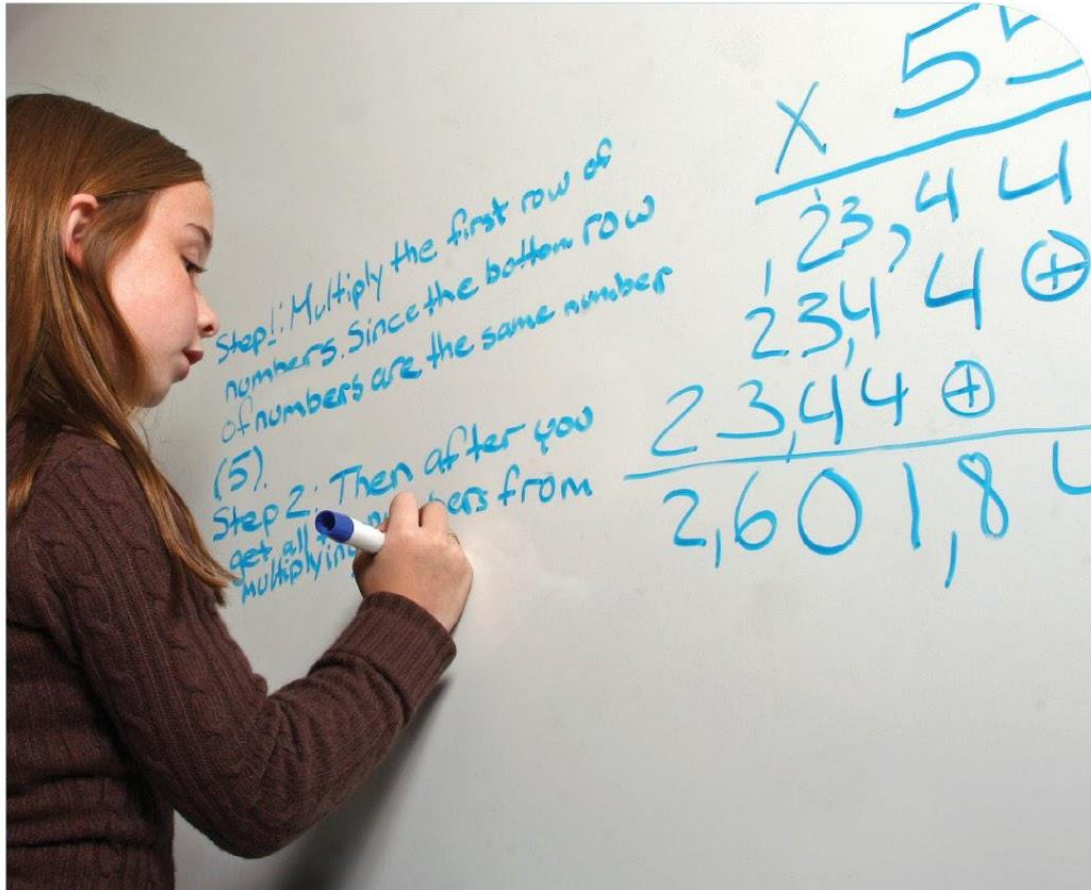 Step 1: Multiply the first row of
numbers. Since the bottom row
of numbers are the same number
(5).
Step 2: Then after you
get all from
multiplying
X 55
23,44
1
23,44 +
23,44 +
2,601,84